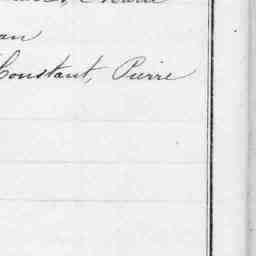 an
Constant, Pierre